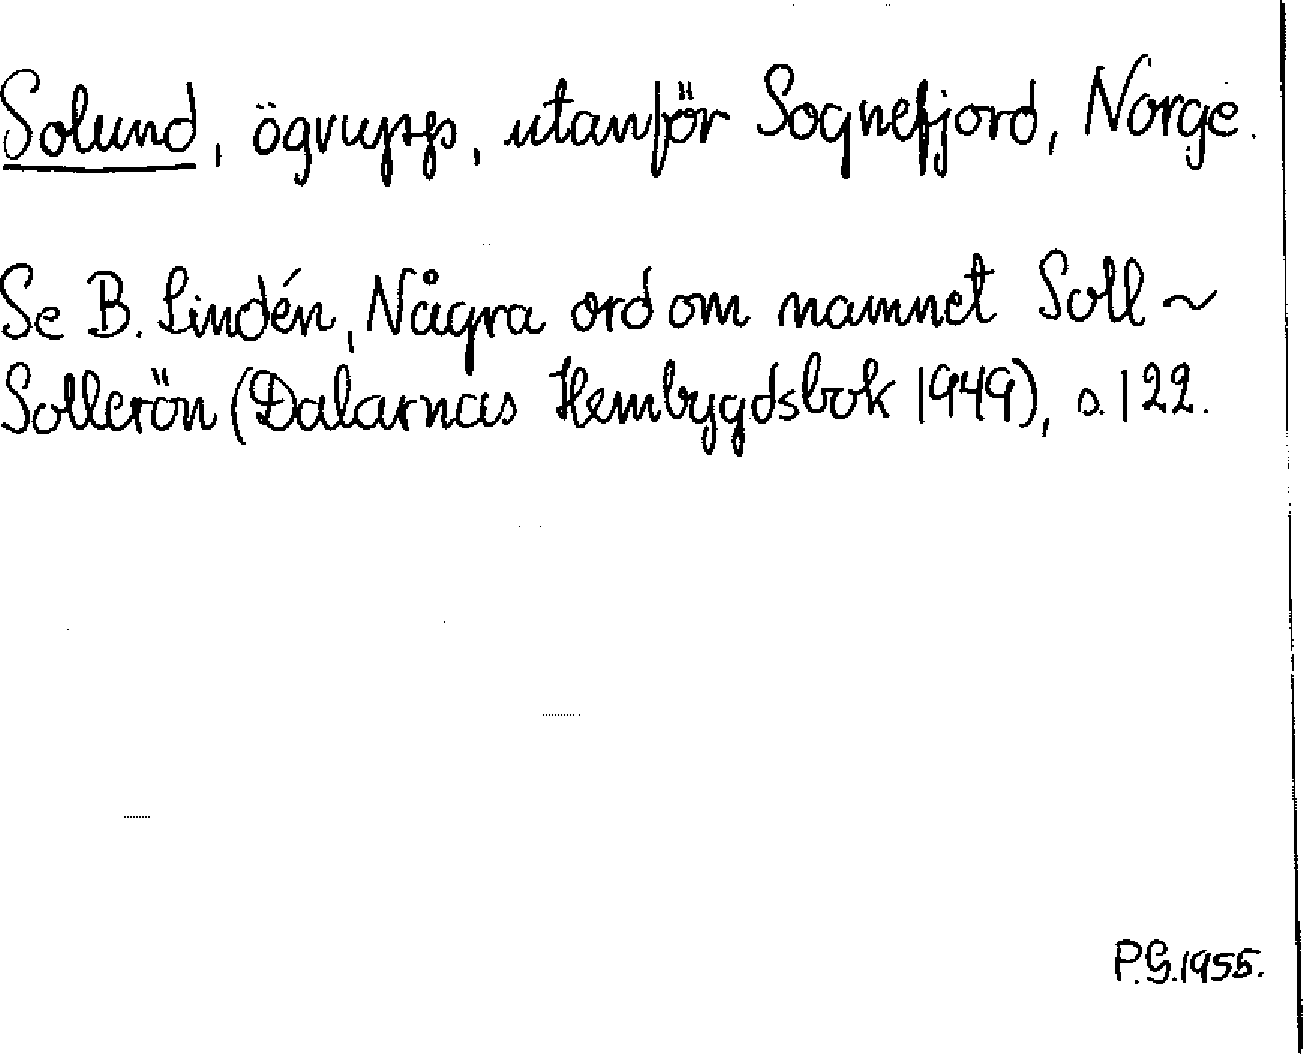 Solund, ögrupp, utanför Sognefjord, Norge.
Se B. Lindén, Några ord om namnet Soll ~
Sollerön (Dalarnas Hembygdsbok 1949), s. 122.
P.G. 1955.